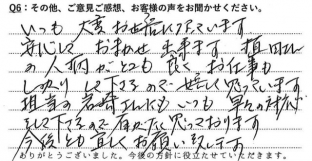 Q6：その他、ご意見ご感想、お客様の声をお聞かせください。
いつも大変お世話になっています
安心して おまかせ出来ます 植田さん
の人柄がとても良く お仕事も
しっかりして下さるので 嬉しく思っています
担当の 若崎さんにも いつも 早々の対応
をして下さるので 有がたく思っております
今後とも宜しくお願いします
ありがとうございました。今後の方針に役立たせていただきます。